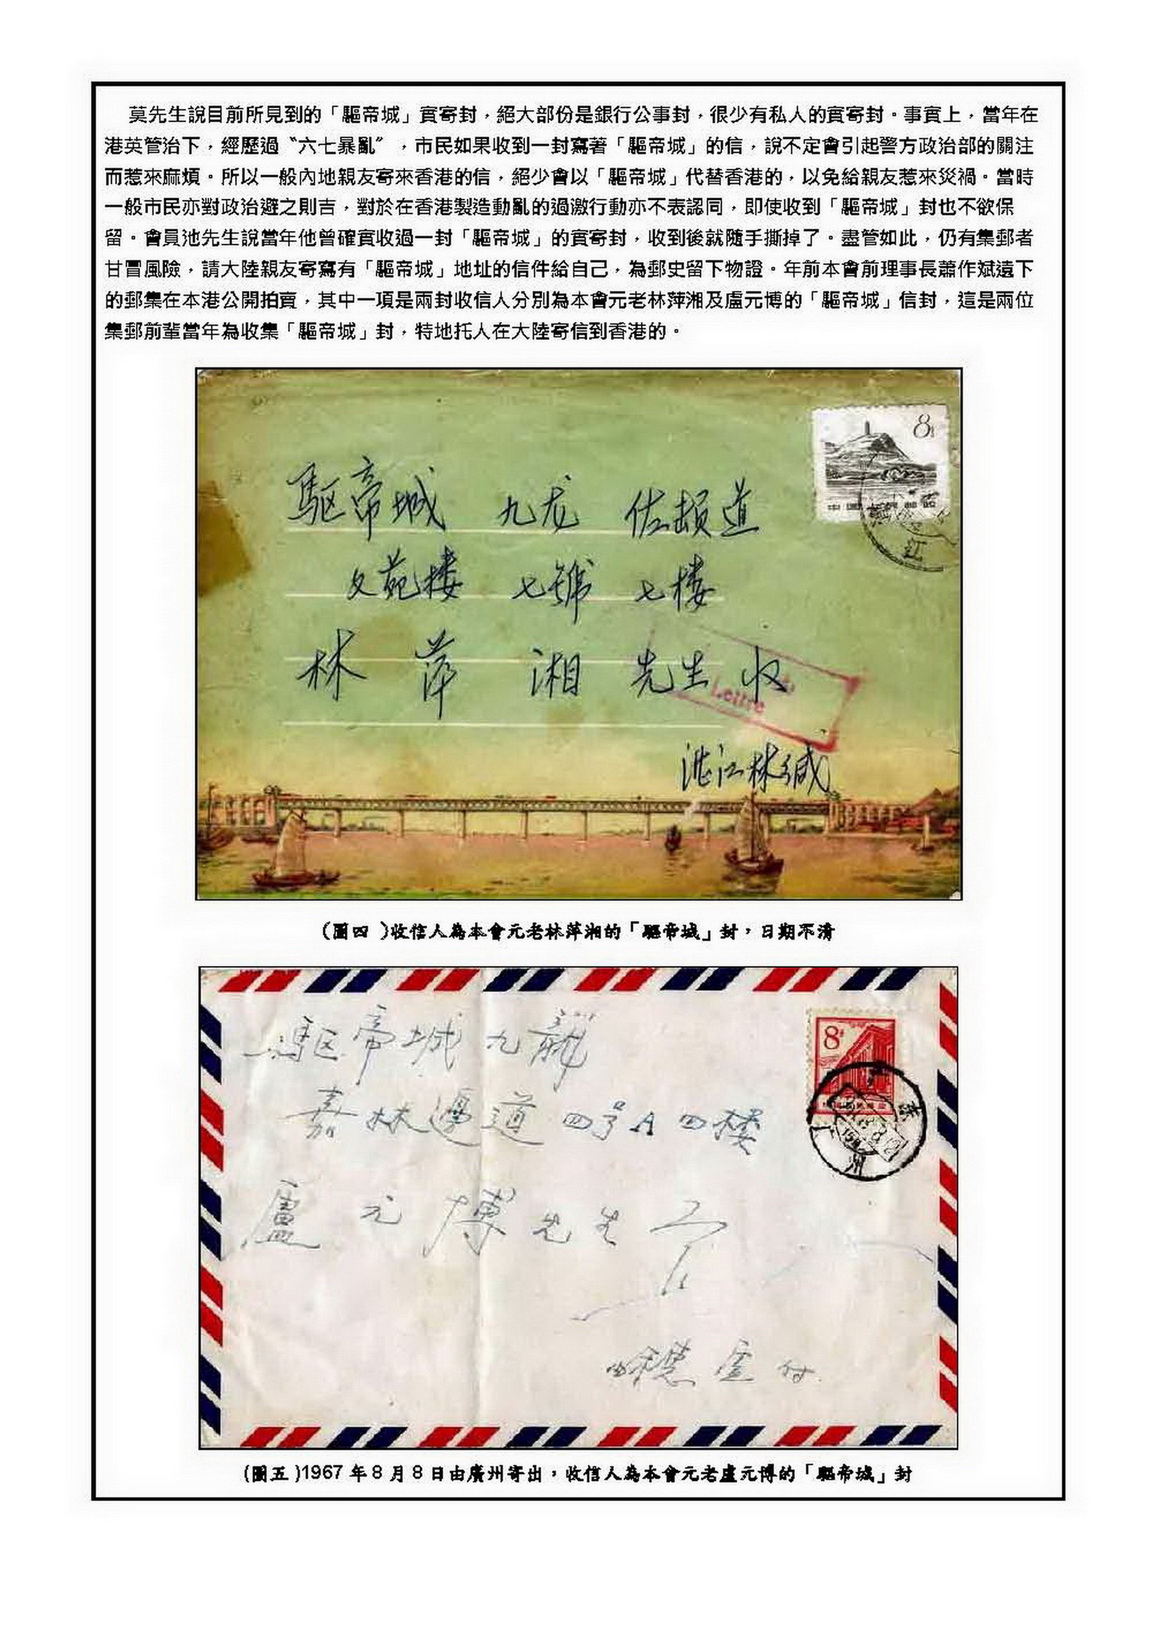 莫先生說目前所見到的「驅帝城」實寄封，絕大部份是銀行公事封，很少有私人的實寄封。事實上，當年在
港英管治下，經歷過〝六七暴亂〞，市民如果收到一封寫著「驅帝城」的信，說不定會引起警方政治部的關注
而惹來麻煩。所以一般內地親友寄來香港的信，絕少會以「驅帝城」代替香港的，以免給親友惹來災禍。當時
一般市民亦對政治避之則吉，對於在香港製造動亂的過激行動亦不表認同，即使收到「驅帝城」封也不欲保
留。會員池先生說當年他曾確實收過一封「驅帝城」的實寄封，收到後就隨手撕掉了。盡管如此，仍有集郵者
甘冒風險，請大陸親友寄寫有「驅帝城」地址的信件給自己，為郵史留下物證。年前本會前理事長蕭作斌遺下
的郵集在本港公開拍賣，其中一項是兩封收信人分別為本會元老林萍湘及盧元博的「驅帝城」信封，這是兩位
集郵前輩當年為收集「驅帝城」封，特地托人在大陸寄信到香港的。
8
驱帝城 九龙 佐頓道
文苑楼 七號 七楼
林 萍 湘 先生 收
Lettre
江
湛江林缄
(圖四 )收信人為本會元老林萍湘的「驅帝城」封，日期不清
8
驱帝城 九龍
嘉林邊道 四号A 四楼
盧 元 博 先生
穗 盧 付
(圖五 )1967 年 8 月 8 日由廣州寄出，收信人為本會元老盧元博的「驅帝城」封